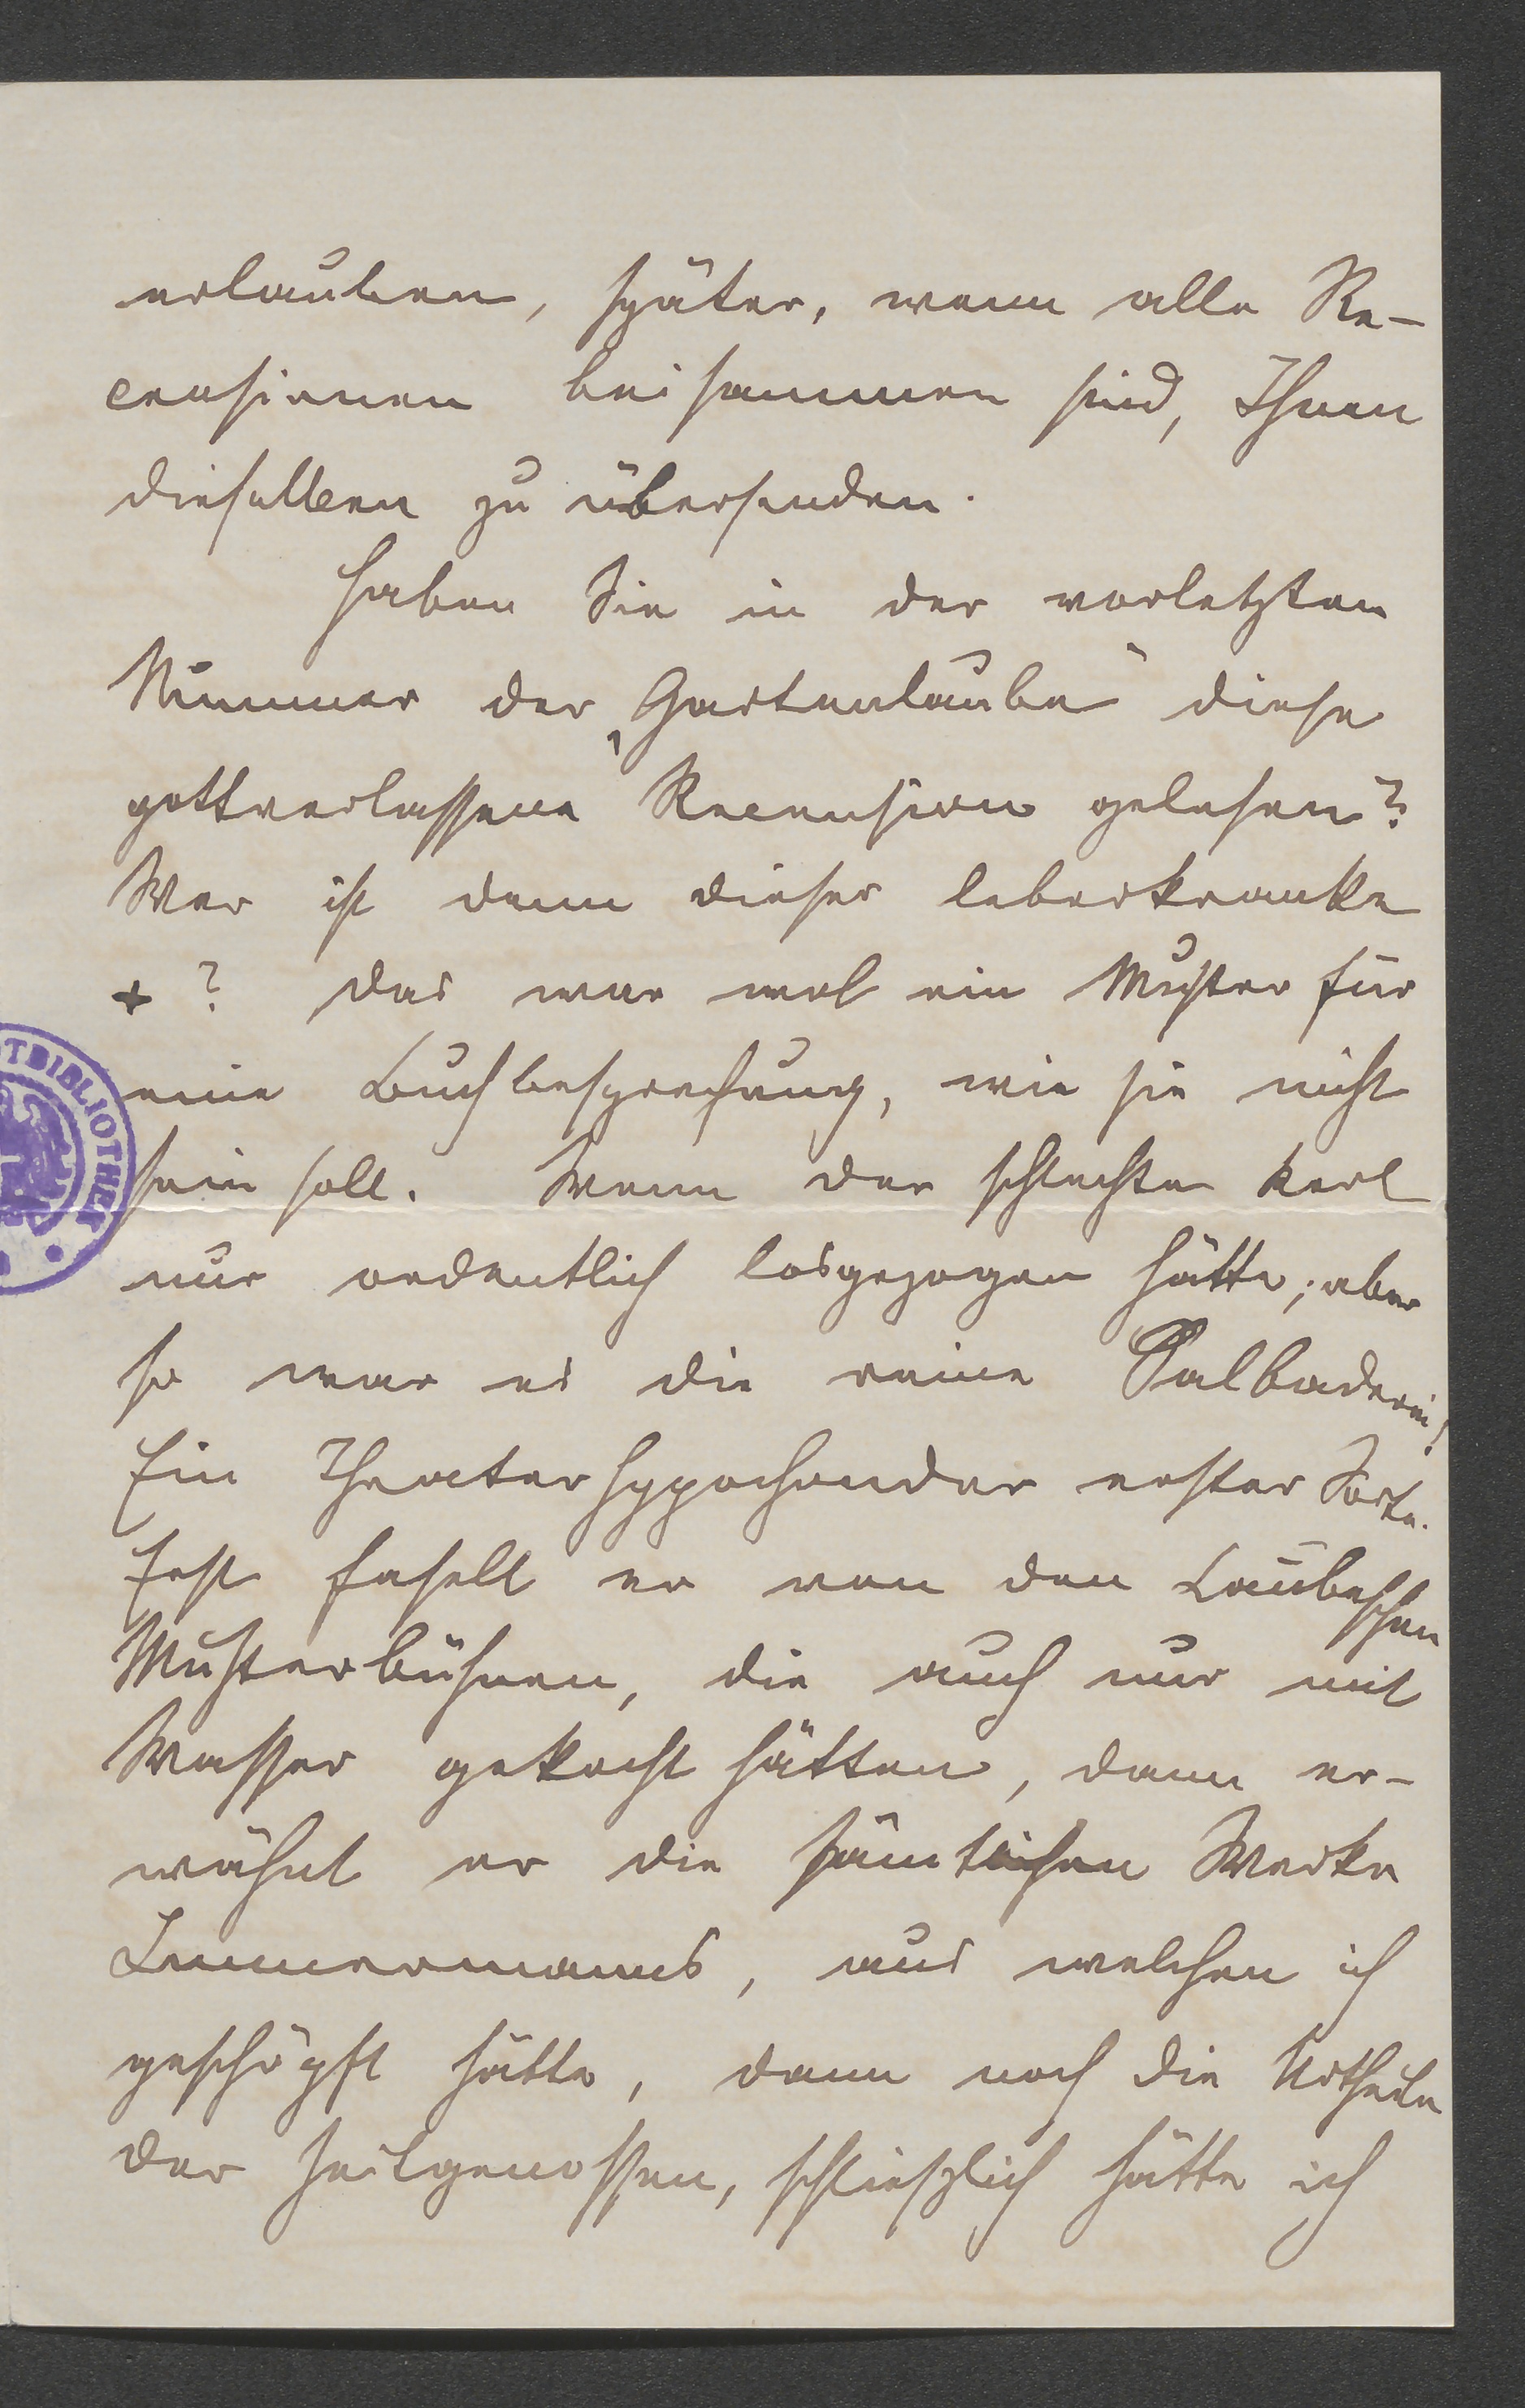 erlauben, später, wenn alle Re-
censionen beisammen sind, Ihnen
dieselben zu übersenden.
Haben Sie in der vorletzten
Nummer der „Gartenlaube“ diese
gottverlassene Recension gelesen?
Wer ist denn dieser leberkranke
+? Das war wol ein Muster für
eine Buchbesprechung, wie sie nicht
sein soll. Wenn der schlechte Kerl
nur ordentlich losgezogen hätte; aber
so war es die reine Salbaderei!
Ein Theaterhypochonder erster Sorte.
Erst faselt er von den Laubeschen
Musterbühnen, die auch nur mit
Wasser gekocht hätten, dann er-
wähnt er die sämtlichen Werke
Immermanns, aus welchen ich
geschöpft hätte, dann noch die Urtheile
der Zeitgenossen, schließlich hätte ich
TBIBLIOTHEK